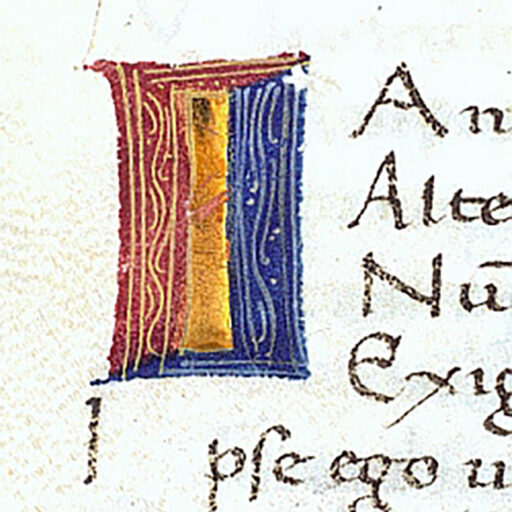 I An
Alte
Nū
Exig
I pſe ego u